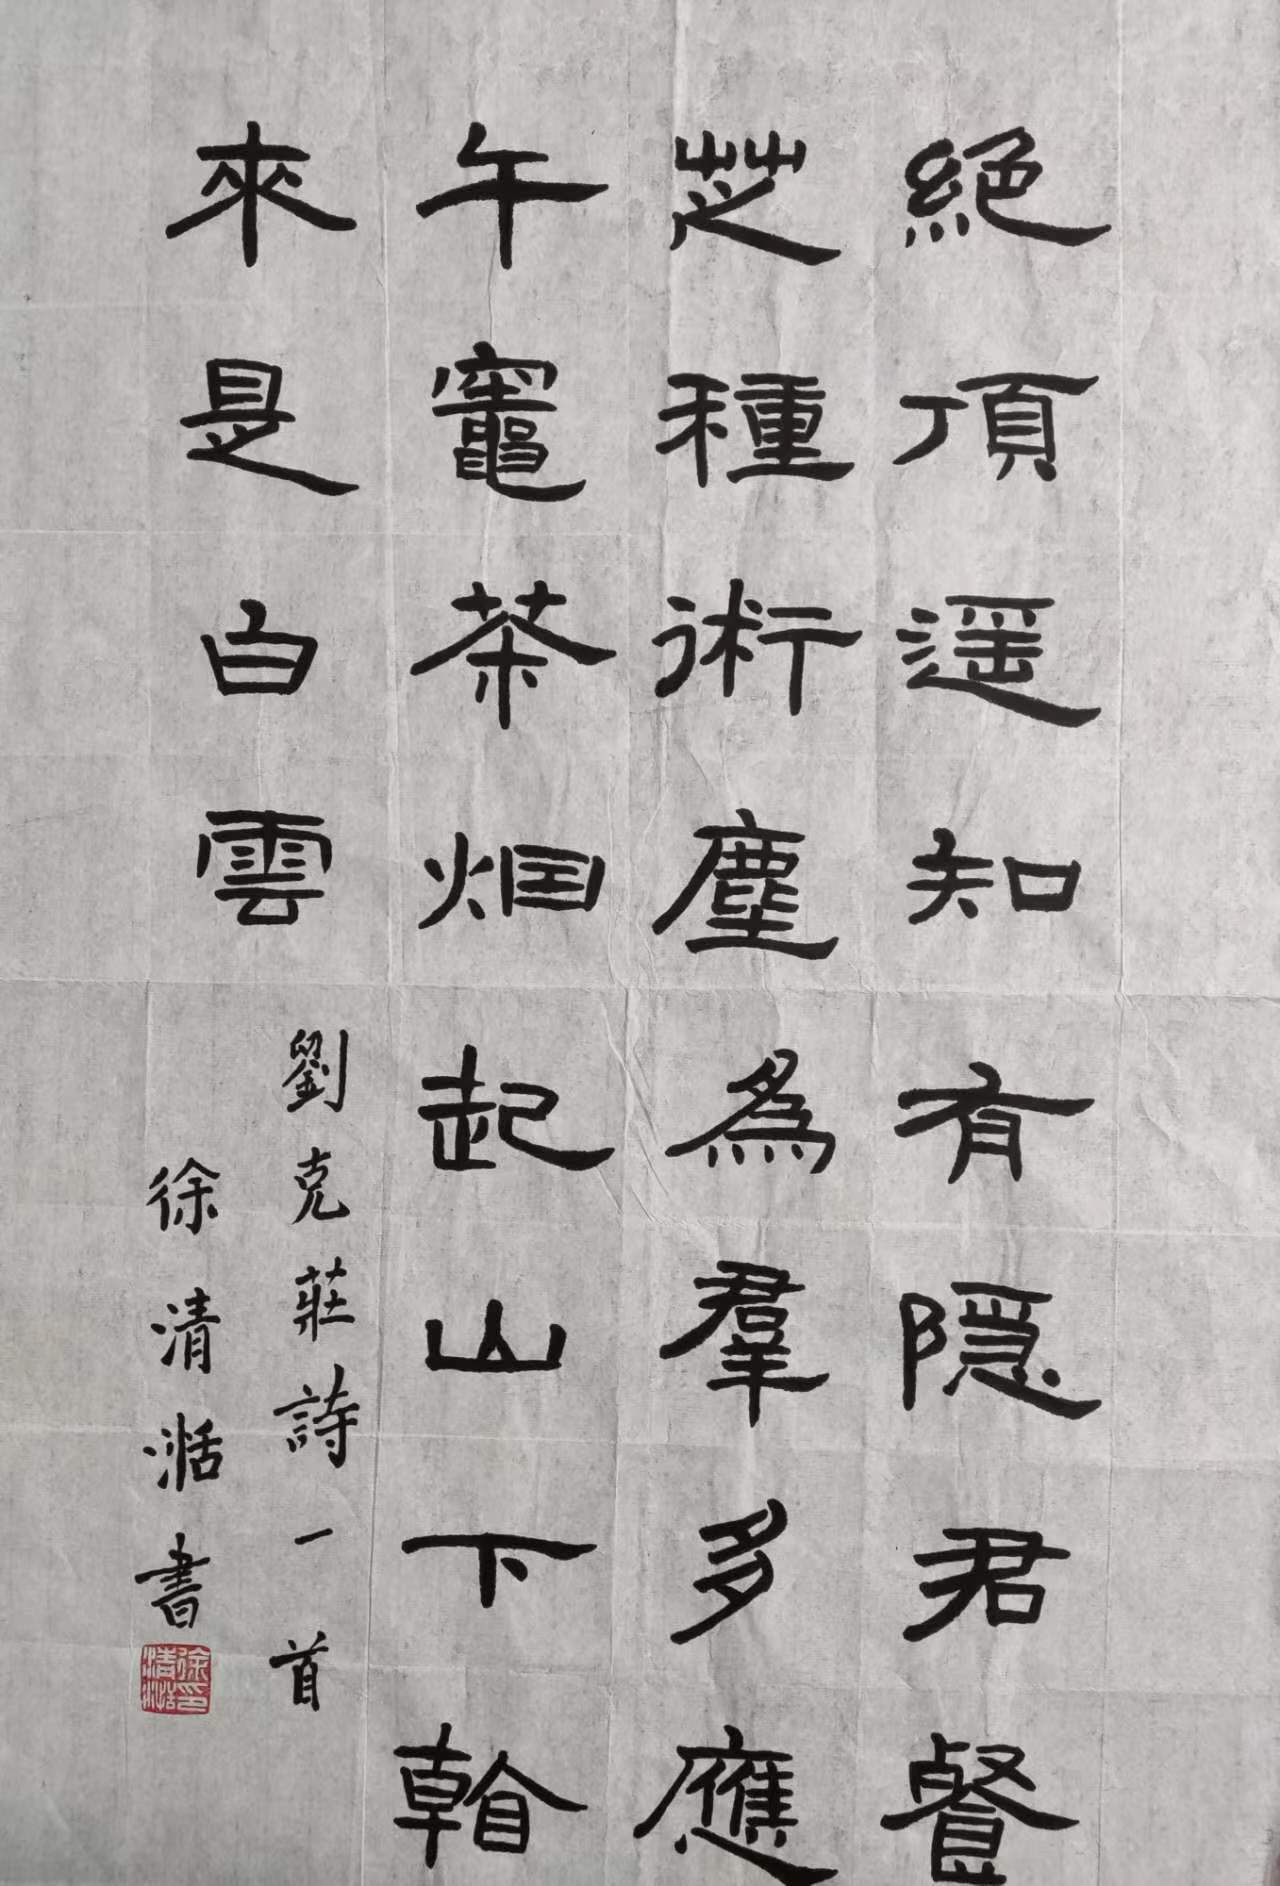 絶頂遥知有隱君餐
芝種術塵為羣多應
午竈茶烟起山下䩞
來是白雲
劉克莊詩一首
徐清湉書
徐清湉印